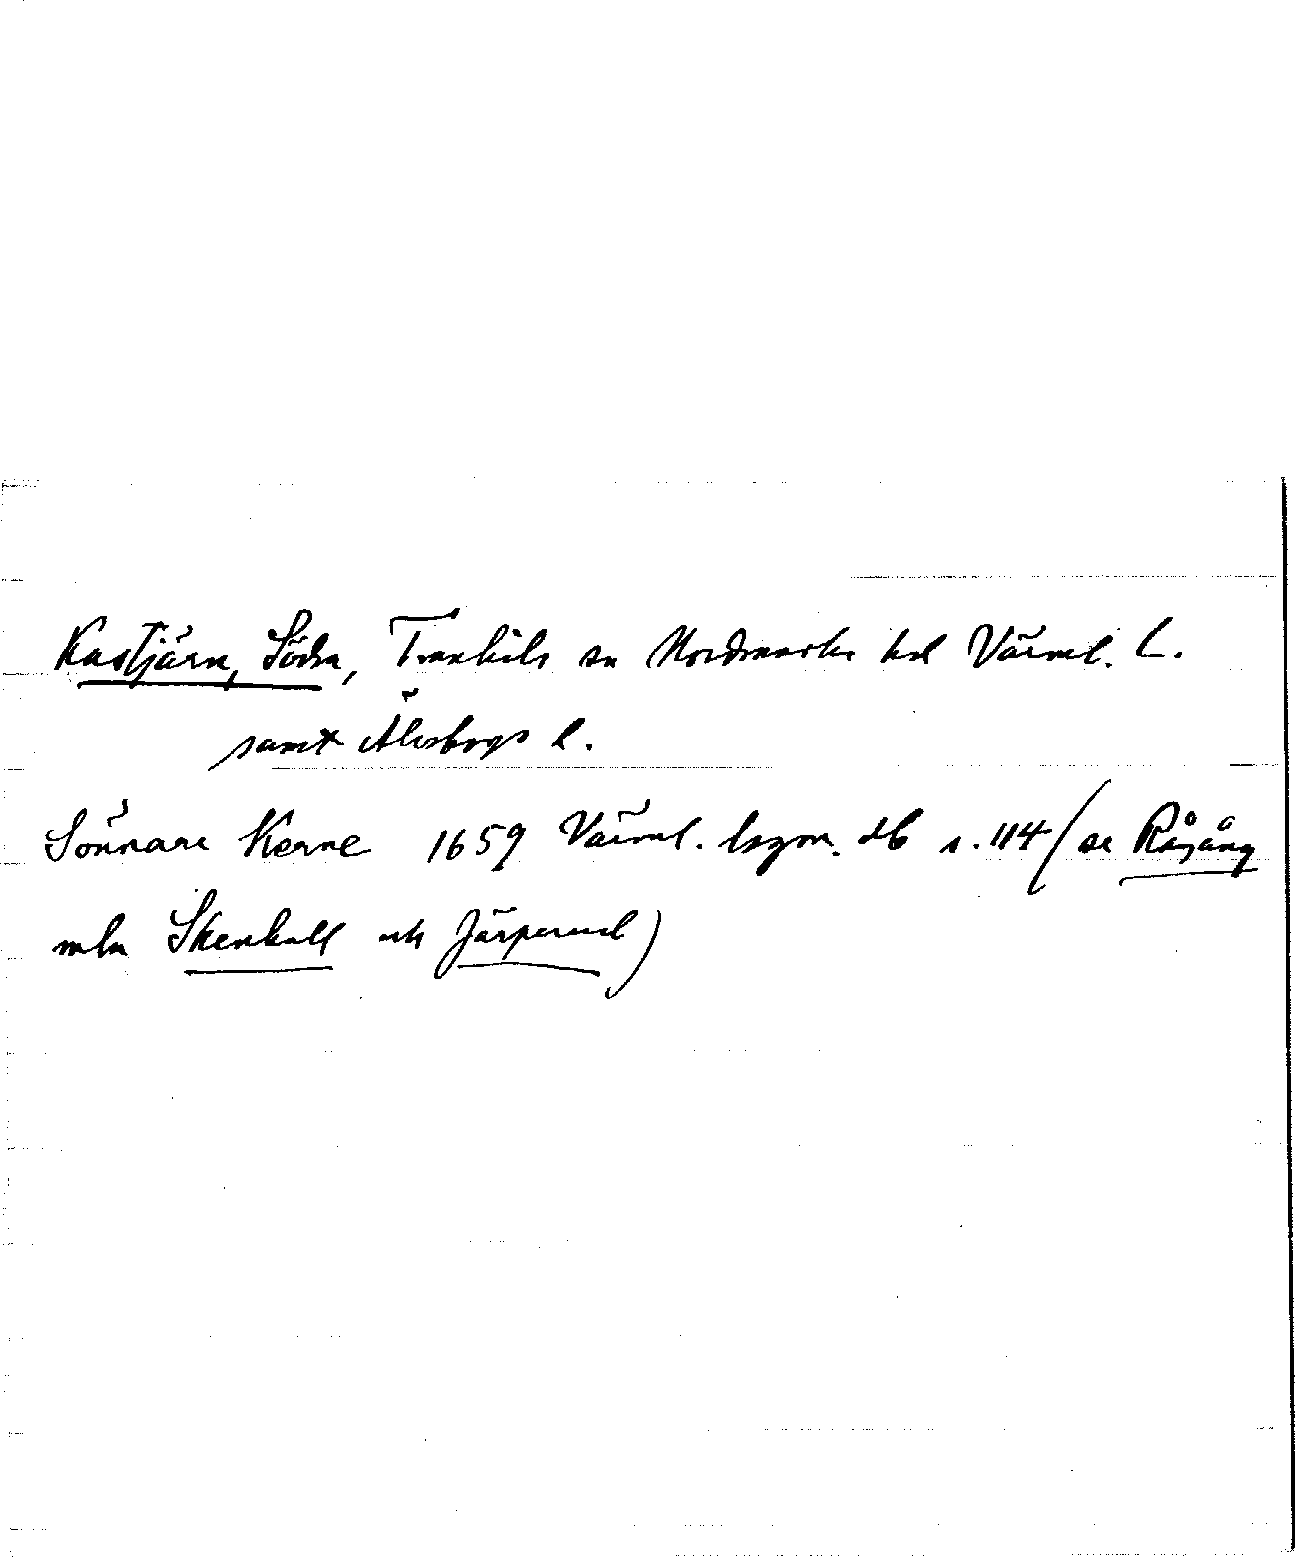 Kastjärn, Södra, Trankils sn Nordmarks hd Värml. L.
samt Älvsborgs l.
Sönnare Kerne 1659 Värml. lszm. db s. 114 (se Rågång
mln Skenhall och Järperud)